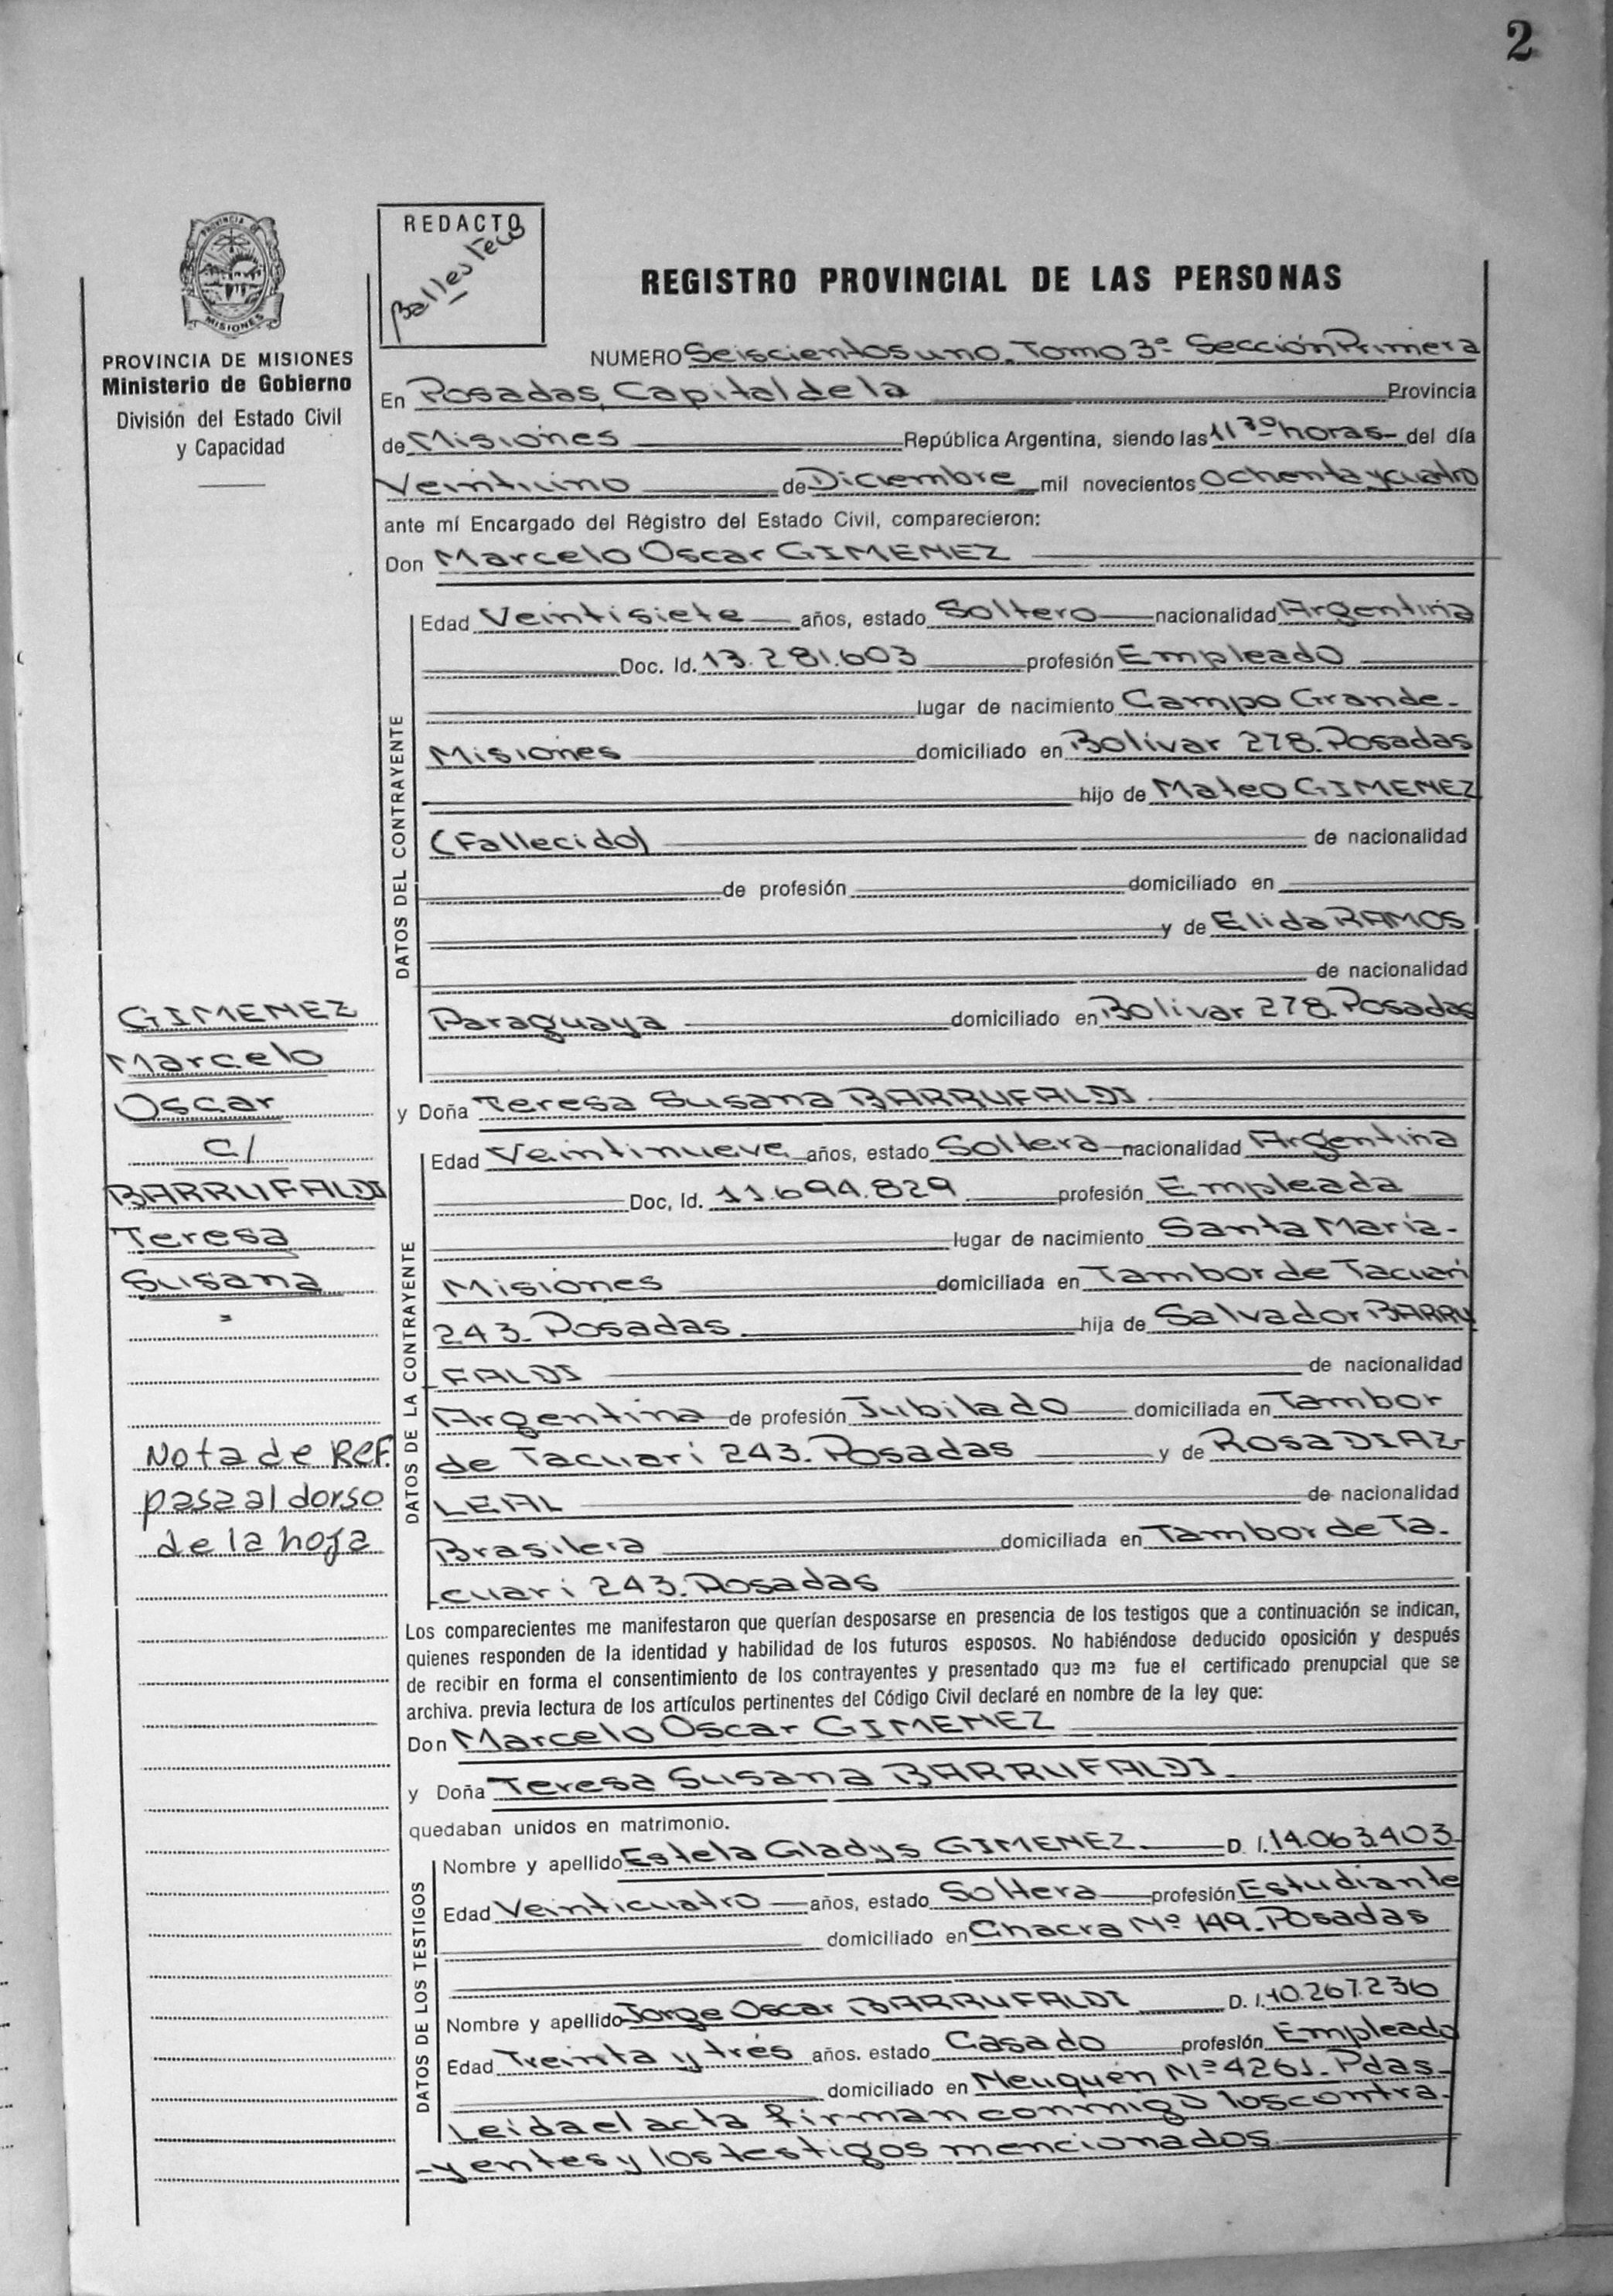 2
PROVINCIA DE
MISIONES
PROVINCIA DE MISIONES
Ministerio de Gobierno
División del Estado Civil
y Capacidad
REDACTO
REGISTRO PROVINCIAL DE LAS PERSONAS
NUMERO Seiscientos uno. Tomo 3º Sección Primera
En Posadas, Capital de la Provincia
de Misiones República Argentina, siendo las 11 30 horas del día
Veintiuno de Diciembre mil novecientos Ochenta y cuatro
ante mí Encargado del Registro del Estado Civil, comparecieron:
Don Marcelo Oscar GIMENEZ
DATOS DEL CONTRAYENTE
Edad Veintisiete años, estado Soltero nacionalidad Argentina
Doc. Id. 13.281.603 profesión Empleado
lugar de nacimiento Campo Grande-
Misiones domiciliado en Bolívar 278. Posadas
hijo de Mateo GIMENEZ
(Fallecido) de nacionalidad
de profesión domiciliado en
y de Elida RAMOS
de nacionalidad
Paraguaya domiciliado en Bolivar 278. Posadas
GIMENEZ
Marcelo
Oscar
C/
BARRUFALDI
Teresa
Susana
Nota de Ref.
pasa al dorso
de la hoja
y Doña Teresa Susana BARRUFALDI
DATOS DE LA CONTRAYENTE
Edad Veintinueve años, estado Soltera nacionalidad Argentina
Doc, Id. 11.694.829 profesión Empleada
lugar de nacimiento Santa María-
Misiones domiciliada en Tambor de Tacuarí
243. Posadas hija de Salvador BARRU
FALDI de nacionalidad
Argentina de profesión Jubilado domiciliada en Tambor
de Tacuarí 243. Posadas y de Rosa DIAZ-
LEAL de nacionalidad
Brasilera domiciliada en Tambor de Ta-
cuarí 243. Posadas
Los comparecientes me manifestaron que querían desposarse en presencia de los testigos que a continuación se indican,
quienes responden de la identidad y habilidad de los futuros esposos. No habiéndose deducido oposición y después
de recibir en forma el consentimiento de los contrayentes y presentado que me fue el certificado prenupcial que se
archiva. previa lectura de los artículos pertinentes del Código Civil declaré en nombre de la ley que:
Don Marcelo Oscar GIMENEZ
y Doña Teresa Susana BARRUFALDI
quedaban unidos en matrimonio.
DATOS DE LOS TESTIGOS
Nombre y apellido Estela Gladys GIMENEZ D. I. 14.063.403
Edad Veinticuatro años, estado Soltera profesión Estudiante
domiciliado en Chacra Nº 149. Posadas
Nombre y apellido Jorge Oscar BARRUFALDI D. I. 10.267.236
Edad Treinta y trés años. estado Casado profesión Empleado
domiciliado en Neuquén Nº 4261. Pdas-
Leída el acta firman conmigo los contra-
-yentes y los testigos mencionados